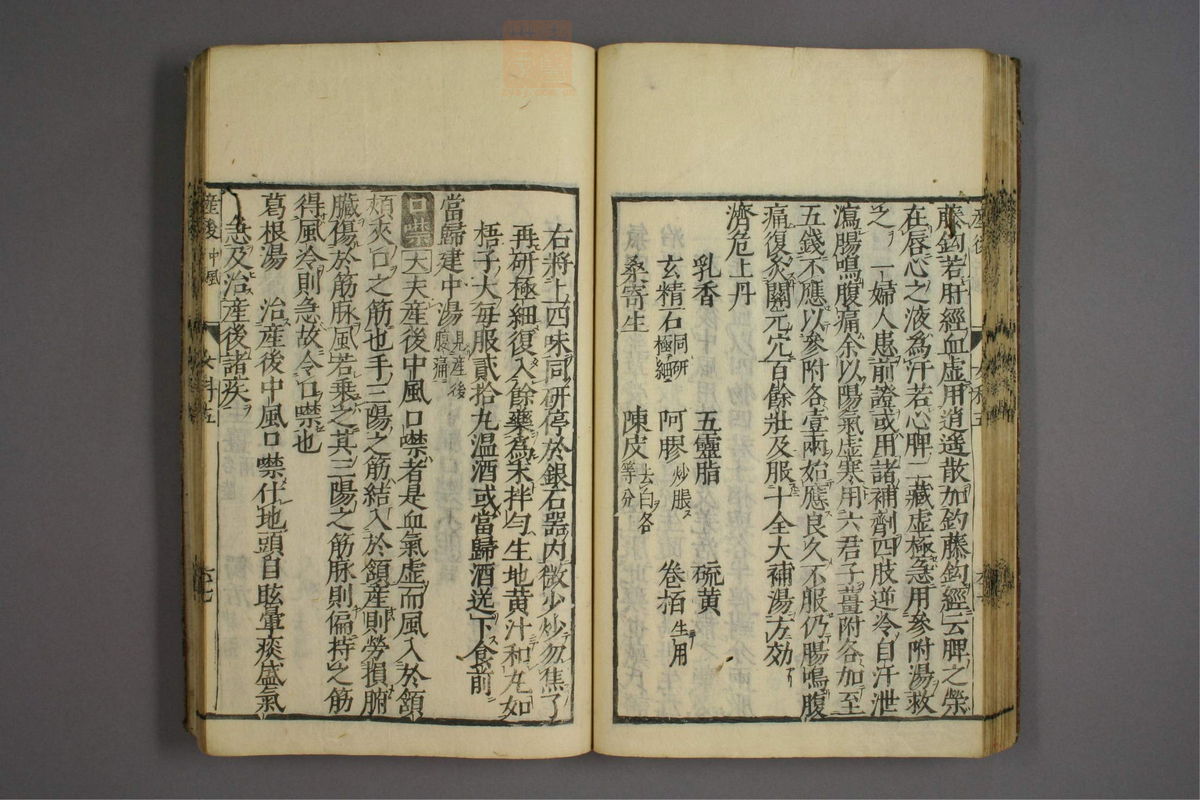 藤鈎若肝經血虛用逍遙散加鈎藤鈎經云脾之榮
在唇心之液為汗若心脾二藏虛極急用參附湯救
之　一婦人患前證或用諸補劑四肢逆冷自汗泄
瀉腸鳴腹痛余以陽氣虛寒用六君子薑附各加至
五錢不應以參附各壹兩始應良久不服仍腸鳴腹
痛復灸關元穴百餘壯及服十全大補湯方効
濟危上丹
乳香　五靈脂　硫黄
玄精石同研極細　阿膠炒脹　卷栢生用
桑寄生　陳皮去白各等分
右將上四味同研停於銀石器内微少炒勿焦了
再研極細復入餘藥為末拌勻生地黄汁和丸如
梧子大每服貳拾丸温酒或當歸酒送下食前
當歸建中湯見產後腹痛
口噤 大 夫産後中風口噤者是血氣虛而風入於頷
頰夾口之筋也手三陽之筋結入於頷産則勞損腑
臟傷於筋脉風若乘之其三陽之筋脉則偏持之筋
得風冷則急故令口噤也
葛根湯　治産後中風口噤仆地頭自眩暈痰盛氣
急及治産後諸疾
産後中風
女科五